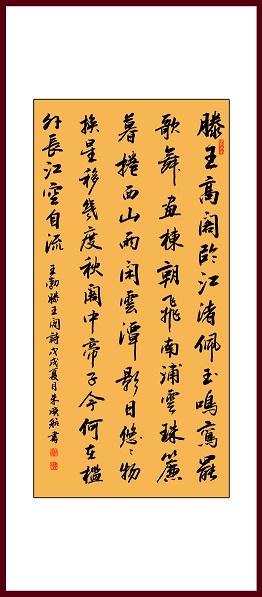 滕王高閣臨江渚佩玉鳴鸞罷
歌舞畫棟朝飛南浦雲珠簾
暮捲西山雨閑雲潭影日悠〻物
換星移幾度秋閣中帝子今何在檻
外長江空自流
王勃滕王閣詩戊戌夏月朱書